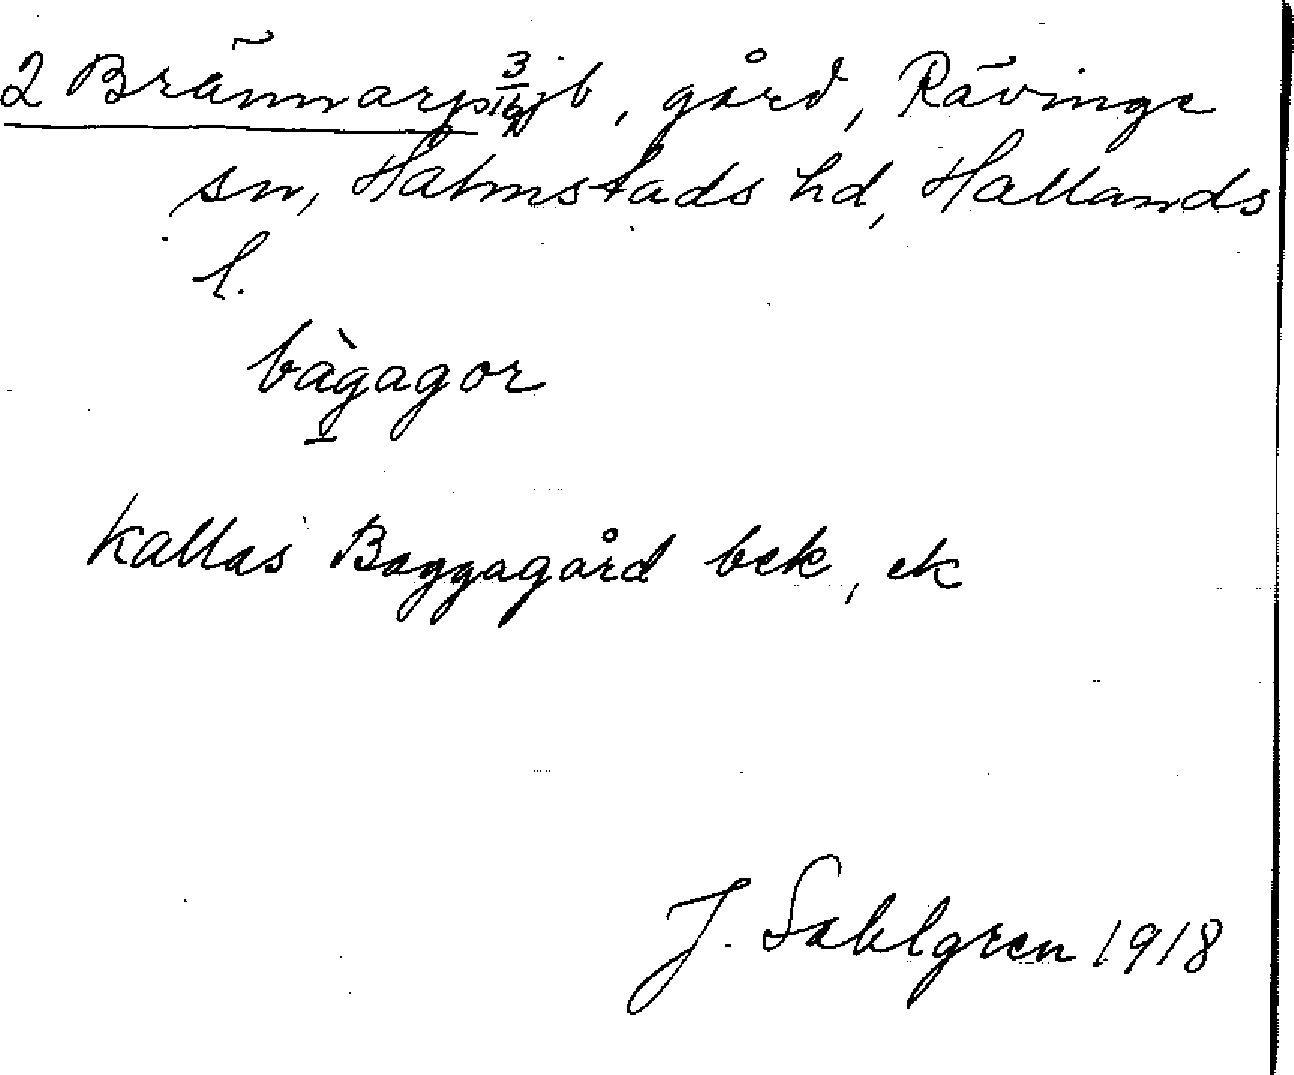 2 Brännarp 3/16 jb, gård, Rävinge
sn, Halmstads hd, Hallands
l.
bàgagor
kallas Baggagård bek, ek
J. Sahlgren 1918